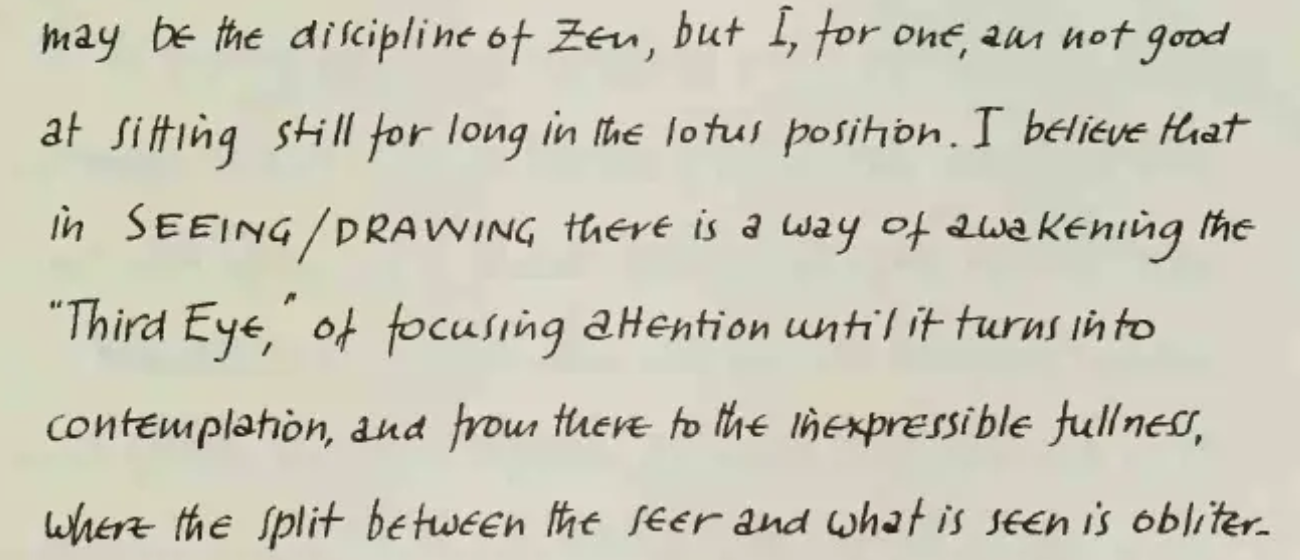 may be the discipline of Zen, but I, for one, am not good
at sitting still for long in the lotus position. I believe that
in SEEING/DRAWING there is a way of awakening the
"Third Eye," of focusing attention until it turns into
contemplation, and from there to the inexpressible fullness,
where the split between the seer and what is seen is obliter-